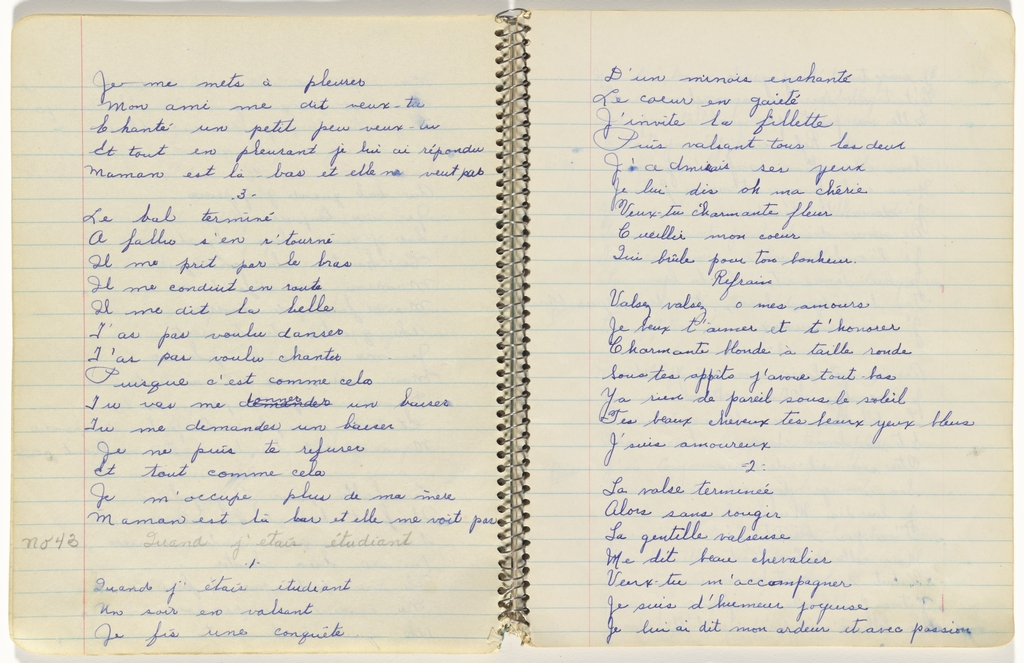 Je me mets à pleurer
Mon ami me dit veux-tu
Chanté un petit peu veux-tu
Et tout en pleurant je lui ai répondu
Maman est là-bas et elle ne veut pas
.3-
Le bal terminé
A fallu s'en r'tourné
Il me prit par le bras
Il me conduit en route
Il me dit la belle
T'as pas voulu danser
T'as pas voulu chanter
Puisque c'est comme cela
Tu vas me donner un baiser
Tu me demander un baiser
Je ne puis te refuser
Et tout comme cela
Je m'occupe plus de ma mère
Maman est là bas et elle me voit pas
no 43 Quand j'étais étudiant
.1.
Quand j'étais étudiant
Un soir en valsant
Je fis une conquête
D'un minois enchanté
Le coeur en gaieté
J'invite la fillette
Puis valsant tous les deux
J'admirais ses yeux
Je lui dis oh ma chérie
Veux-tu charmante fleur
Cueillir mon coeur
Qui brûle pour ton bonheur.
Refrain
Valsez valsez o mes amours
Je veux t'aimer et t'honorer
Charmante blonde à taille ronde
Sous tes appâts j'avoue tout bas
Y'a rien de pareil sous le soleil
Tes beaux cheveux tes beaux yeux bleus
J'suis amoureux
-2-
La valse terminée
Alors sans rougir
La gentille valseuse
Me dit beau chevalier
Veux-tu m'accompagner
Je suis d'humeur joyeuse
Je lui ai dit mon ardeur et avec passion